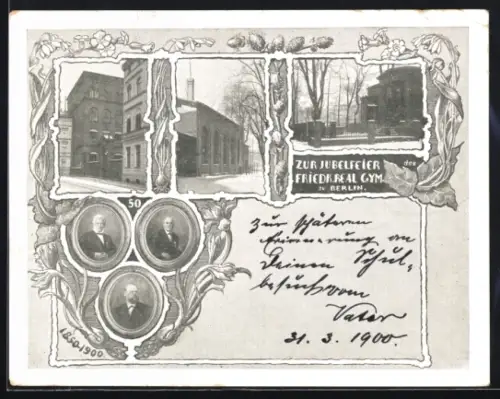 ZUR JUBELFEIER des
FRIEDR. REAL GYM.
IN BERLIN.
50
1850-1900
Zur späteren
Erinnerung an
Deinen Schul-
besuch vom
Vater
31. 3. 1900.